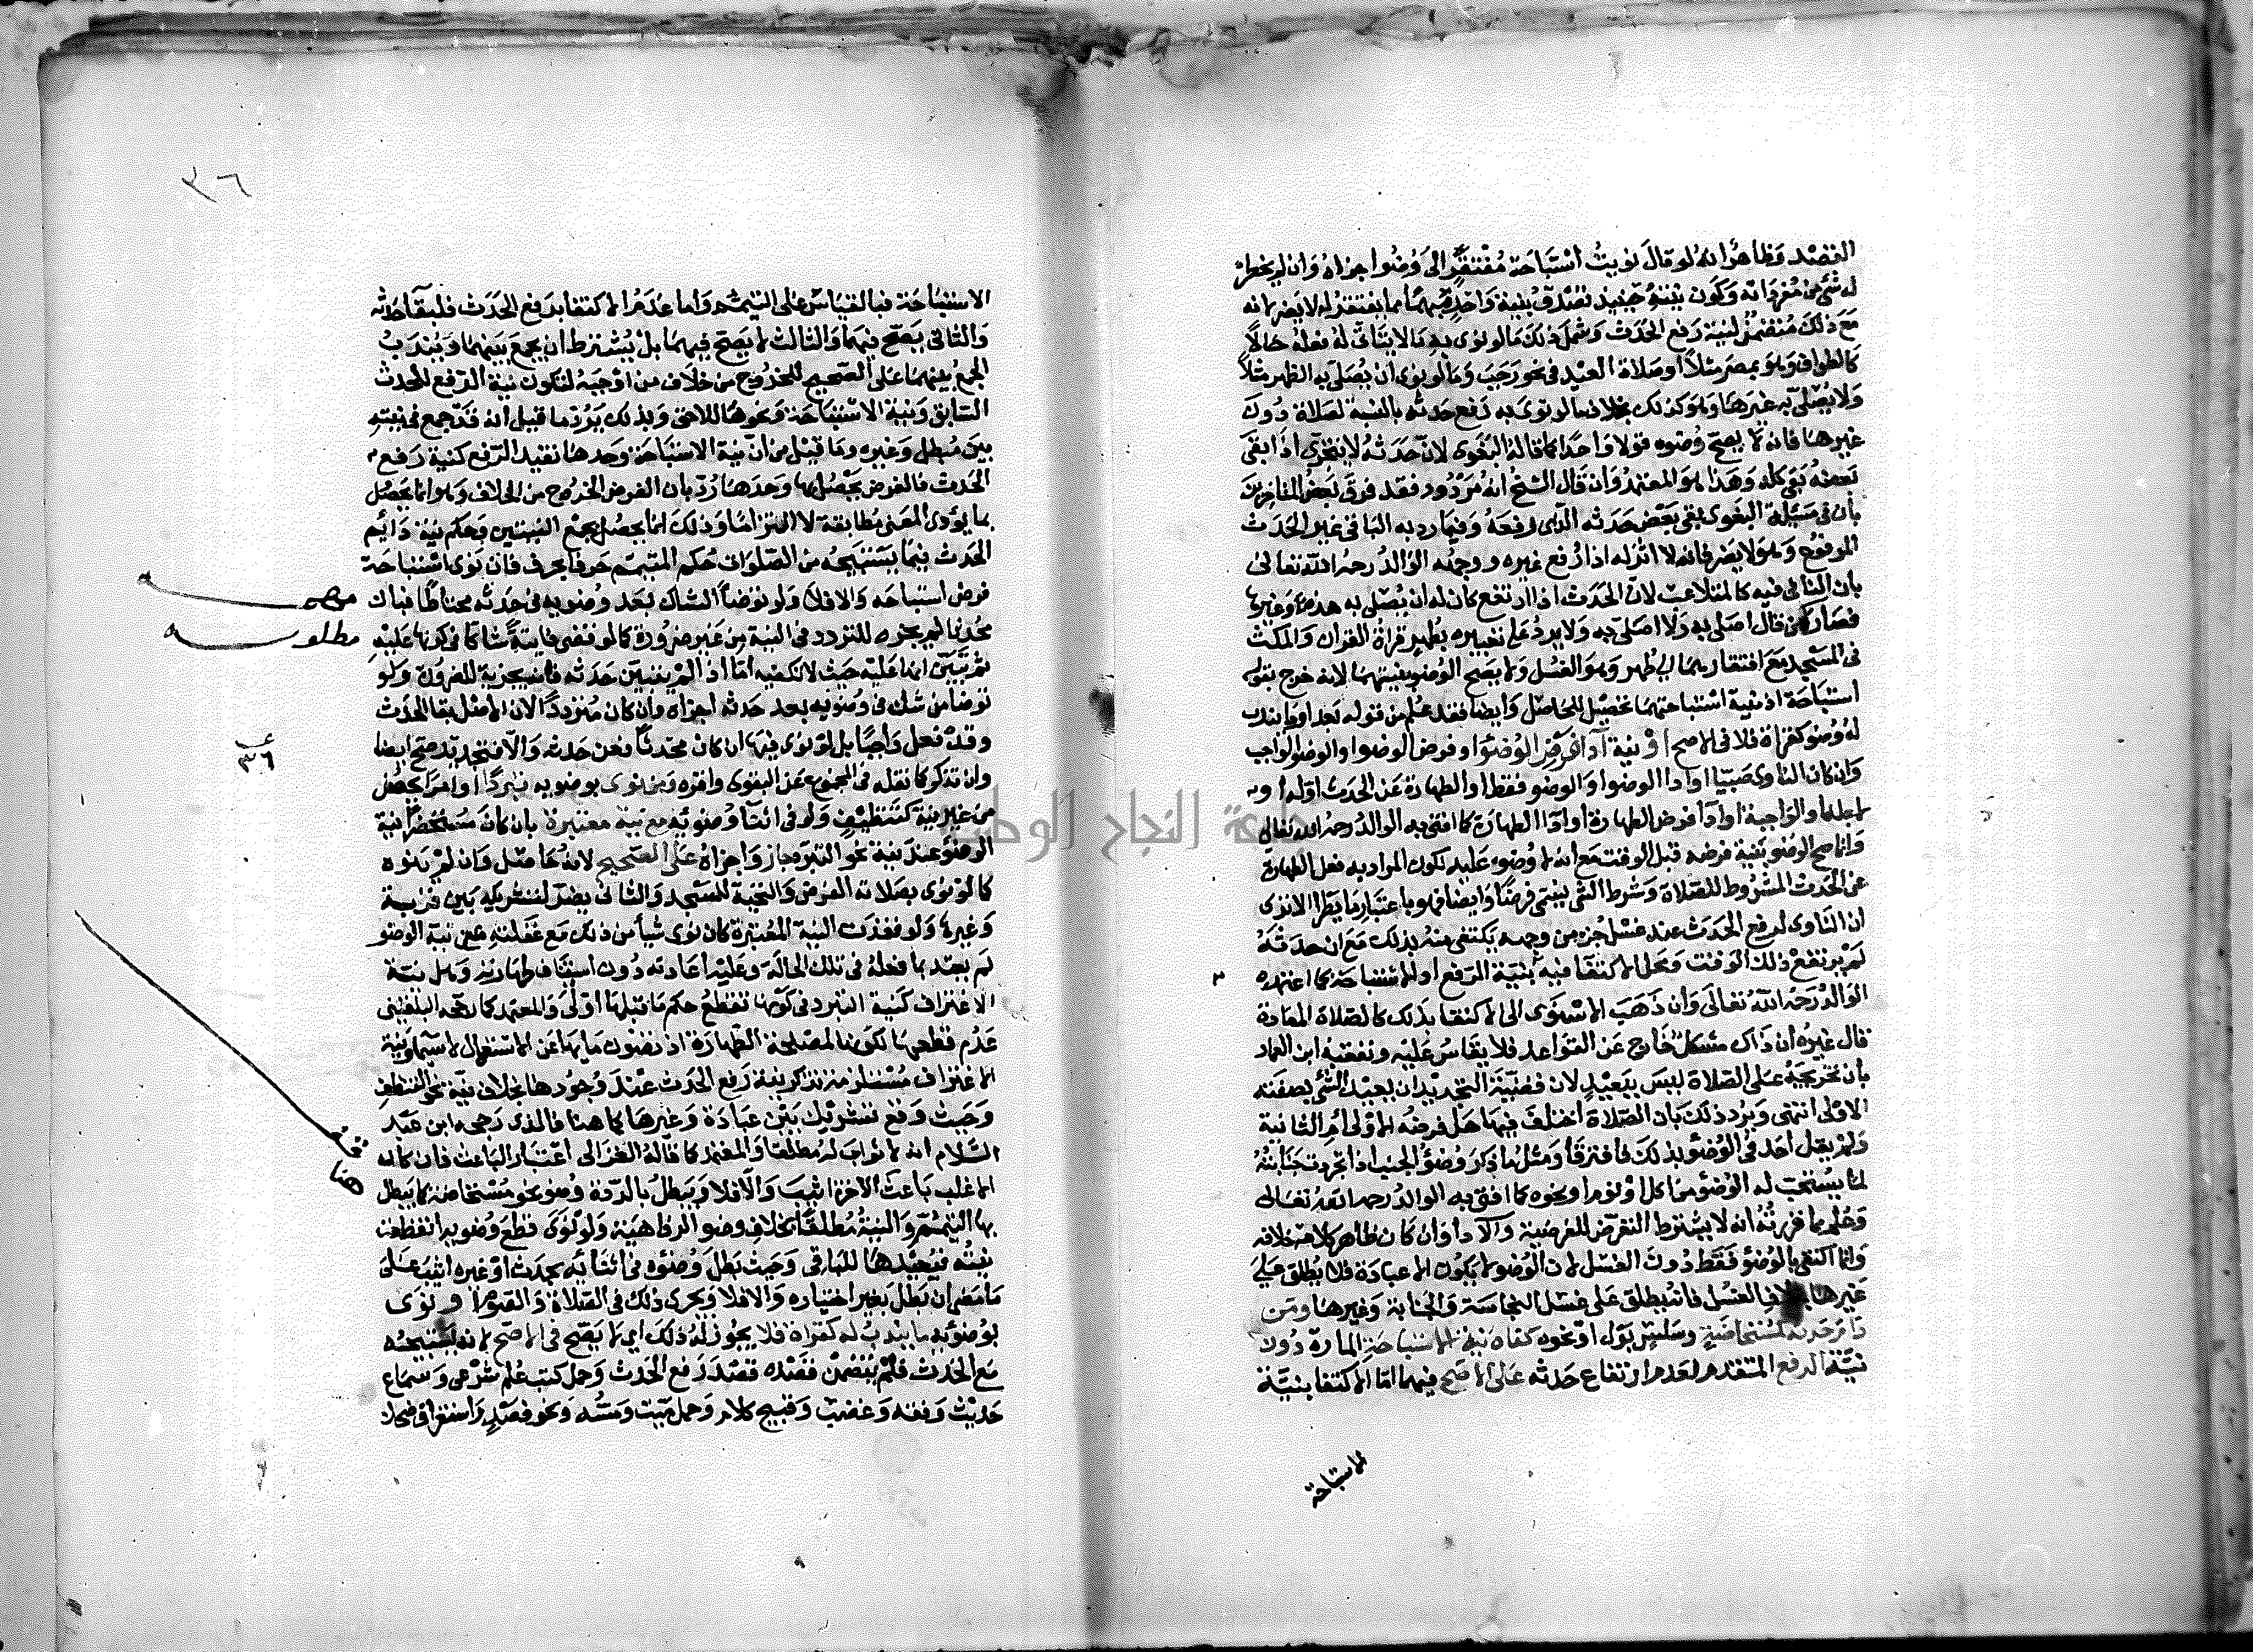 القصد وظاهره انه لو قال نويت استباحة مفتقر الى وضوا جزاه وان لم يخطر
له شئ من مفرداته وتكون نيته حينئذ تصدق بنية واحد مبهم مما يفتقر له لا يضر لانه
مع ذلك متضمن لنية رفع الحدث وشمل ذلك ما لو نوى به ما لا يتاتى له فعله حالا
كالطواف وهو بمصر مثلا او صلاة العيد في نحو رجب وما لو نوى ان يصلى به الظهر مثلا
ولا يصلى به غيرها وهو كذلك بخلاف ما لو نوى به رفع حدثه بالنسبة لصلاة دون
غيرها فانه لا يصح وضوه قولا واحدا كما قاله البغوى لان حدثه لا يتجزى اذا بقى
بعضه بقى كله وهذا هو المعتمد وان قال الشيخ انه مردود فقد فرق بعض المتاخرين
بان في مسئلة البغوى بقى بعض حدثه الذي رفعه وفيما رد به الباقى غير الحدث
المرفوع وهو لا يضر فانه لا اثر له اذا رفع غيره ووجهه الوالد رحمه الله تعالى
بان الناى فيه كالمتلاعب لان الحدث اذا ارتفع كان له ان يصلى به هذه وغيرها
فصار كمن قال اصلى به ولا اصلى به ولا يرد على تعبيره بطهر قراة القران والمكث
في المسجد مع افتقارهما الى طهر وهو الغسل ولا يصح الوضو بنيتهما لانه خرج بقوله
استباحة اذ نية استباحتهما تحصيل للحاصل وايضا فقد علم من قوله بعد او ما يندب
له وضو كقراة فلا في الاصح او نية اداء فرض الوضوء او فرض الوضوا والوضو الواجب
وان كان الناوى صبيا او ادا الوضوا والوضو فقط او الطهارة عن الحدث او له او
لاجله او الواجبة او ادا فرض الطهارة او ادا الطهارة كما افتى به الوالد رحمه الله تعالى
وانما صح الوضو بنية فرضه قبل الوقت مع انه لا وضوء عليه لكون المراد به فعل الطهارة
عن الحدث المشروط للصلاة وشرط الشئ يسمى فرضا وايضا فهو باعتبار ما يطرا الا ترى
ان الناوى لرفع الحدث عند غسل جزء من وجهه يكتفى منه بذلك مع ان حدثه
لم يرتفع ذلك الوقت ومحل الاكتفا فيه بنية الرفع او الاستباحة كما اعتمده
الوالد رحمه الله تعالى وان ذهب الاسنوى الى الاكتفا بذلك كالصلاة المعادة
قال غيره ان ذاك مشكل خارج عن القواعد فلا يقاس عليه وتعقبه ابن العماد
بان تخريجه على الصلاة ليس ببعيد لان قضية التجديد ان يعيد الشئ بصفته
الاولى انتهى ويرد ذلك بان الصلاة اختلف فيها هل فرضه الاولى ام الثانية
ولم يقل احد في الوضو بذلك فافترقا ومثل ما ذكر وضوء الجنب اذا تجردت جنابته
لما يستحب له الوضو من اكل او نوم او نحوه كما افتى به الوالد رحمه الله تعالى
وعلم مما قررته انه لا يشترط التعرض للفرضية والادا وان كان ظاهر كلامه خلافه
وانما اكتفى بالوضو فقط دون الغسل لان الوضو لا يكون الا عبادة فلا يطلق على
غيرها بخلاف الغسل فانه يطلق على غسل النجاسة والجنابة وغيرها ومن
دام حدثه كمستحاضة وسلس بول او نحوه كفاه نية الاستباحة المارة دون
نية الرفع المتقدم لعدم ارتفاع حدثه على الاصح فيهما اما الاكتفا بنية
الاستباحة
٣٦
الاستباحة فبالقياس على التيمم واما عدم الاكتفا برفع الحدث فلبقا حدثه
والثانى يصح فيهما والثالث لا يصح فيهما بل يشترط ان يجمع بينهما ويندب
الجمع بينهما على الصحيح للخروج من خلاف من اوجبه لتكون نية الرفع للحدث
السابق ونية الاستباحة ونحوها للاحق وبذلك يرد ما قيل انه قد جمع في نيته
بين مبطل وغيره وما قيل من ان نية الاستباحة وحدها تفيد الرفع كنية رفع
الحدث فالغرض يحصل بها وحدها رد بان الغرض الخروج من الخلاف وهو انما يحصل
بما يؤدى المعنى مطابقة لا التزاما وذلك انما يحصل بجمع النيتين وحكم نية دائم
الحدث فيما يستبيحه من الصلوات حكم المتيمم حرفا بحرف فان نوى استباحة
فرض استباحه والا فلا ولو توضا الشاك بعد وضوئه في حدثه محتاطا فبان
محدثا لم يجزه للتردد في النية من غير ضرورة كما لو قضى فايتة شاكا في كونها عليه
ثم تبين انها عليه حيث لا تكفيه اما اذا لم يتبين حدثه فانه يجزيه للضرورة ولو
توضا من شك في وضوئه بعد حدثه اجزاه وان كان مترددا لان الاصل بقا الحدث
وقد فعل واجبا بل لو نوى فيها ان كان محدثا فعن حدثه والا فتجديد صح ايضا
وان تذكر كما نقله في المجموع عن البغوى واقره ومن نوى بوضوئه تبردا او امرا يحصل
من غير نية كتنظيف ولو في اثنا وضوئه مع نية معتبرة بان كان مستحضرا نية
الوضو عند نية نحو التبرد جاز واجزاه على الصحيح لانه حاصل وان لم ينوه
كما لو نوى بصلاته الفرض والتحية للمسجد والثانى يضر لتشريكه بين قربة
وغيرها ولو فقدت النية المعتبرة كان نوى شيأ من ذلك مع غفلته عن نية الوضو
لم يعتد بما فعله في تلك الحالة وعليه اعادته دون استئناف طهارته وهل نية
الاغتراف كنية التبرد في كونها تقطع حكم ما قبلها او لا والمعتمد كما رجحه البلقينى
عدم قطعها لكونها لمصلحة الطهارة اذ تصون ماءها عن الاستعمال لا سيما ونية
الاغتراف مستلزمة تذكر نية رفع الحدث عند وجودها بخلاف نية نحو التنظف
وحيث وقع تشريك بين عبادة وغيرها كما هنا فالذى رجحه ابن عبد
السلام انه لا ثواب له مطلقا والمعتمد كما قاله الغزالى اعتبار الباعث فان كان
الاغلب باعث الاخرة اثيب والا فلا ويبطل بالردة وضو نحو مستحاضة كما يبطل
بها التيمم والنية مطلقا بخلاف وضو الرفاهية ولو نوى قطع وضوئه انقطعت
نيته فيعيدها للباقى وحيث بطل وضوئه في اثنائه بحدث او غيره اثيب على
ما مضى ان بطل بغير اختياره والا فلا ويجرى ذلك في الصلاة والصوم او نوى
بوضوئه ما يندب له كقراة فلا يجوز له ذلك اي لا يصح في الاصح لانه يستبيحه
مع الحدث فلم يتضمن قصده قصد رفع الحدث وحمل كتب علم شرعى وسماع
حديث وفقه وغضب وقبيح كلام وحمل ميت ومسه ونحو فصد واستغراق ضحك
مهم
مطلوب
٣٦
قف
هنا
جامعة النجاح الوطنية